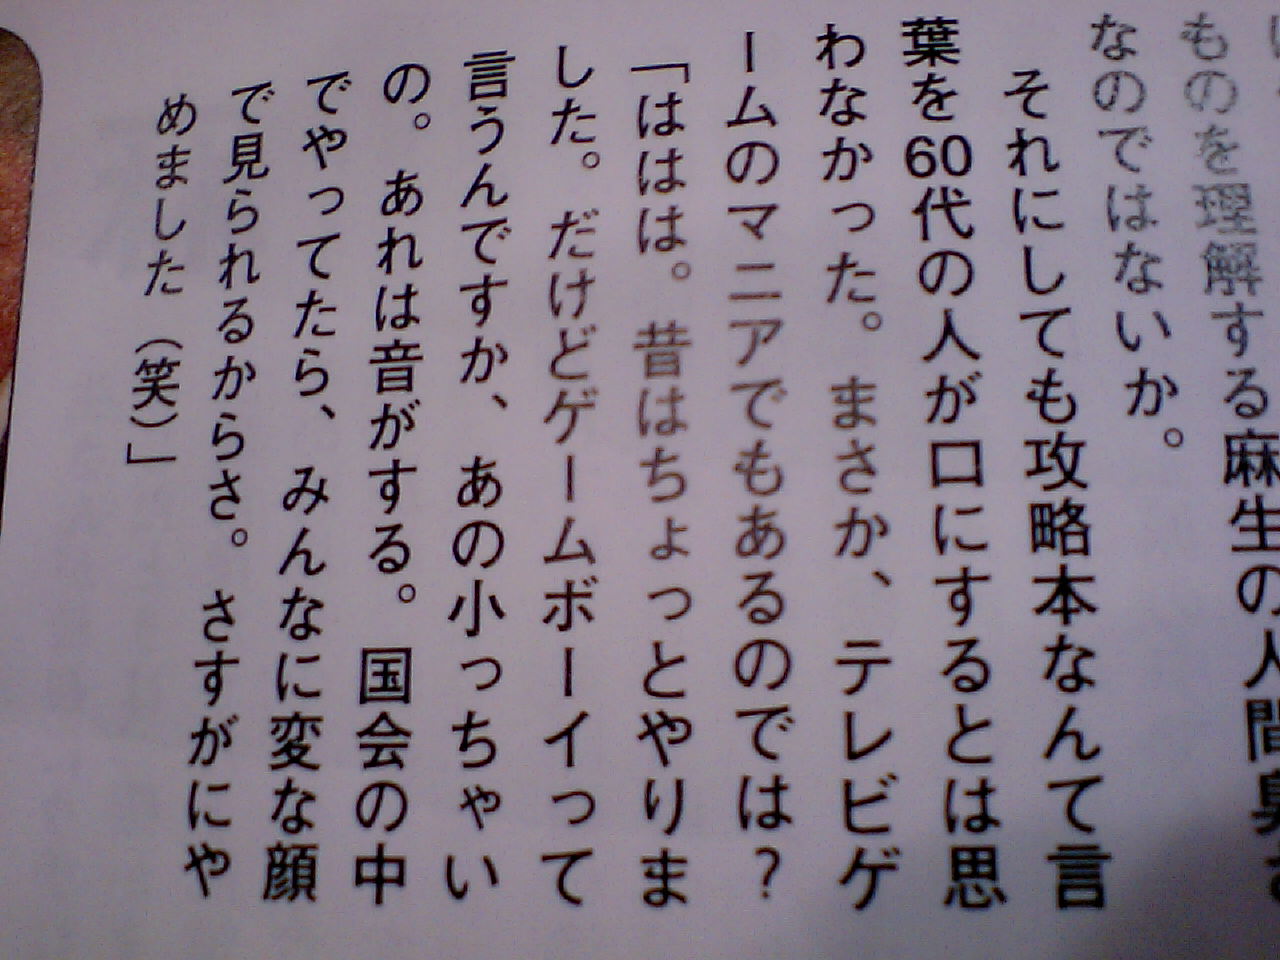 ものを理解する麻生の人間臭さ
なのではないか。
それにしても攻略本なんて言
葉を60代の人が口にするとは思
わなかった。まさか、テレビゲ
ームのマニアでもあるのでは?
「ははは。昔はちょっとやりま
した。だけどゲームボーイって
言うんですか、あの小っちゃい
の。あれは音がする。国会の中
でやってたら、みんなに変な顔
で見られるからさ。さすがにや
めました（笑）」